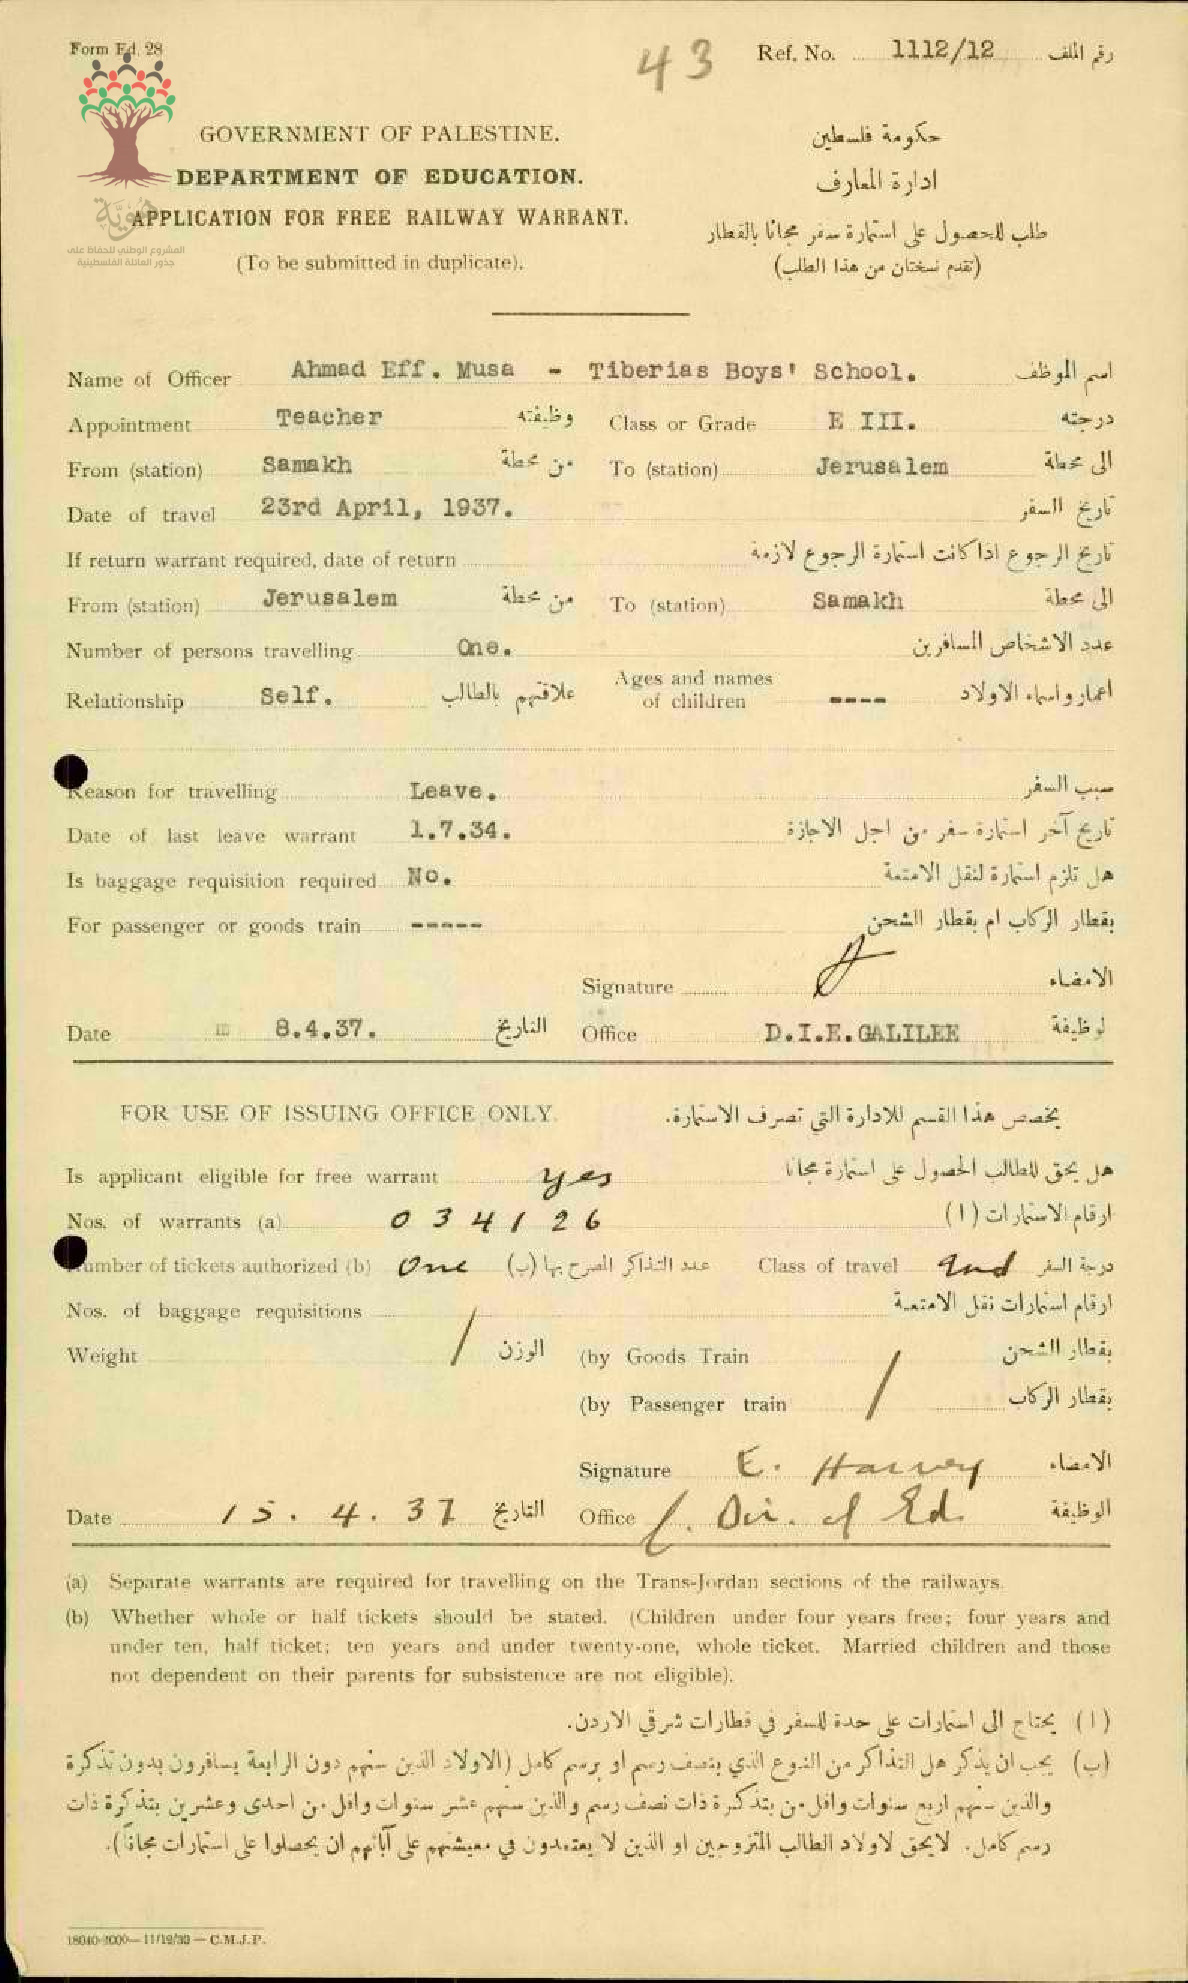 Form Ed. 28
43
Ref. No. 1112/12 رقم الملف
GOVERNMENT OF PALESTINE.
حكومة فلسطين
DEPARTMENT OF EDUCATION.
ادارة المعارف
APPLICATION FOR FREE RAILWAY WARRANT.
طلب للحصول على استمارة سفر مجانا بالقطار
(To be submitted in duplicate).
(تقدم نسختان من هذا الطلب)
هُويَّة
المشروع الوطني للحفاظ على
جذور العائلة الفلسطينية
Name of Officer Ahmad Eff. Musa - Tiberias Boys' School. اسم الموظف
Appointment Teacher وظيفته Class or Grade E III. درجته
From (station) Samakh من محطة To (station) Jerusalem الى محطة
Date of travel 23rd April, 1937. تاريخ السفر
If return warrant required, date of return تاريخ الرجوع اذا كانت استمارة الرجوع لازمة
From (station) Jerusalem من محطة To (station) Samakh الى محطة
Number of persons travelling One. عدد الاشخاص المسافرين
Relationship Self. علاقتهم بالطالب Ages and names of children ---- اعمار واسماء الاولاد
Reason for travelling Leave. سبب السفر
Date of last leave warrant 1.7.34. تاريخ آخر استمارة سفر من اجل الاجازة
Is baggage requisition required No. هل تلزم استمارة لنقل الامتعة
For passenger or goods train ----- بقطار الركاب ام بقطار الشحن
Signature الامضاء
Date 8.4.37. التاريخ Office D.I.E. GALILEE لوظيفة
FOR USE OF ISSUING OFFICE ONLY. يخصص هذا القسم للادارة التي تصرف الاستمارة.
Is applicant eligible for free warrant yes هل يحق للطالب الحصول على استمارة مجانا
Nos. of warrants (a) 034126 ارقام الاستمارات (ا)
Number of tickets authorized (b) One عدد التذاكر المصرح بها (ب) Class of travel 2nd درجة السفر
Nos. of baggage requisitions ارقام استمارات نقل الامتعة
Weight / الوزن (by Goods Train بقطار الشحن
(by Passenger train / بقطار الركاب
Signature E. Harvey الامضاء
Date 15.4.37 التاريخ Office f. Dir. of Ed. الوظيفة
(a) Separate warrants are required for travelling on the Trans-Jordan sections of the railways.
(b) Whether whole or half tickets should be stated. (Children under four years free; four years and
under ten, half ticket; ten years and under twenty-one, whole ticket. Married children and those
not dependent on their parents for subsistence are not eligible).
(ا) يحتاج الى استمارات على حدة للسفر في قطارات شرقي الاردن.
(ب) يجب ان يذكر هل التذاكر من النوع الذي بنصف رسم او برسم كامل (الاولاد الذين سنهم دون الرابعة يسافرون بدون تذكرة
والذين سنهم اربع سنوات واقل من بتذكرة ذات نصف رسم والذين سنهم عشر سنوات واقل من احدى وعشرين بتذكرة ذات
رسم كامل. لا يحق لاولاد الطالب المتزوجين او الذين لا يعتمدون في معيشتهم على آبائهم ان يحصلوا على استمارات مجاناً).
18040-2000—11/12/32—C.M.J.P.